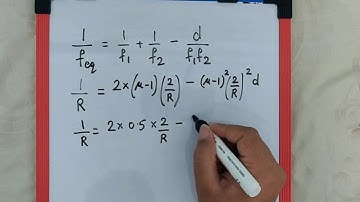 1/f_eq = 1/f₁ + 1/f₂ − d/f₁f₂
1/R = 2×(μ−1)(2/R) − (μ−1)²(2/R)²d
1/R = 2 × 0.5 × 2/R −